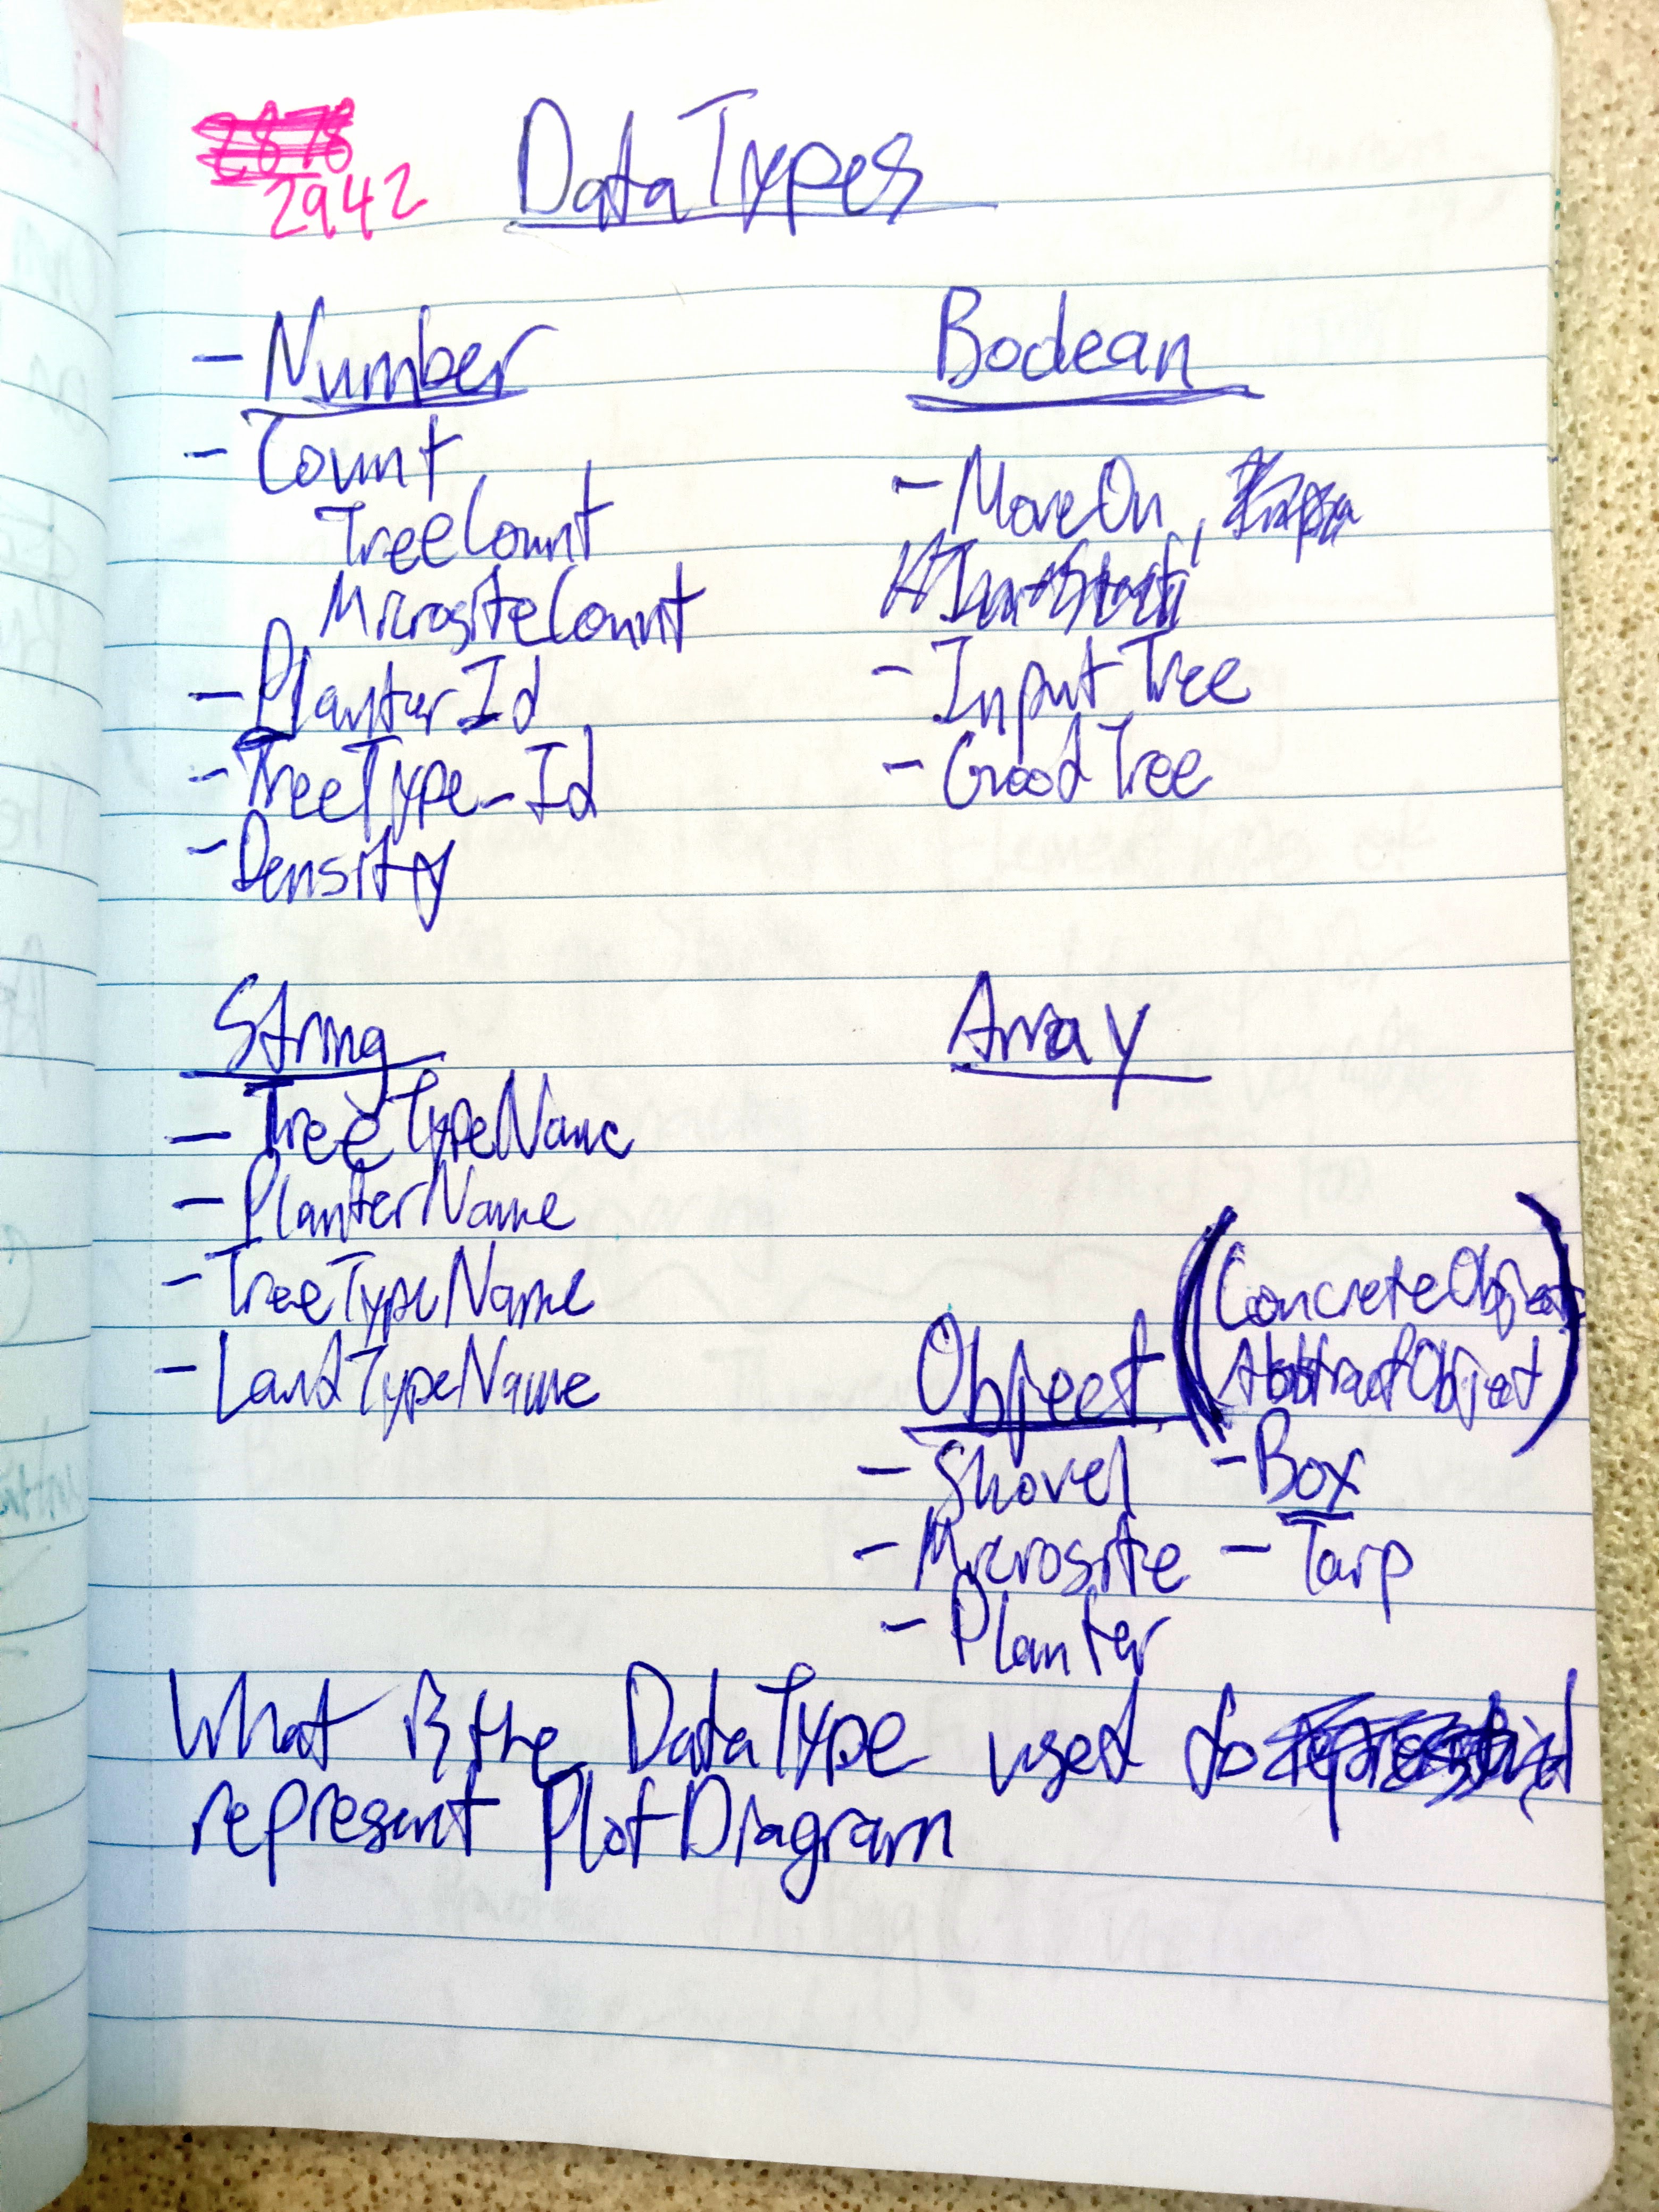 2878
2942
DataTypes
- Number
- Count
TreeCount
MicrositeCount
- PlanterId
- TreeType-Id
- Density
Boolean
- MoveOn,
- InputTree
- GoodTree
String
- TreeTypeName
- PlanterName
- TreeTypeName
- LandTypeName
Array
Object (ConcreteObject
AbstractObject)
- Shovel - Box
- Microsite - Tarp
- Planter
What is the DataType used to
represent PlotDiagram